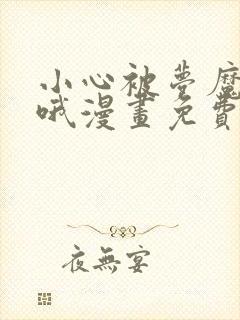 小心被夢魔
哦漫畫免費
夜無宴